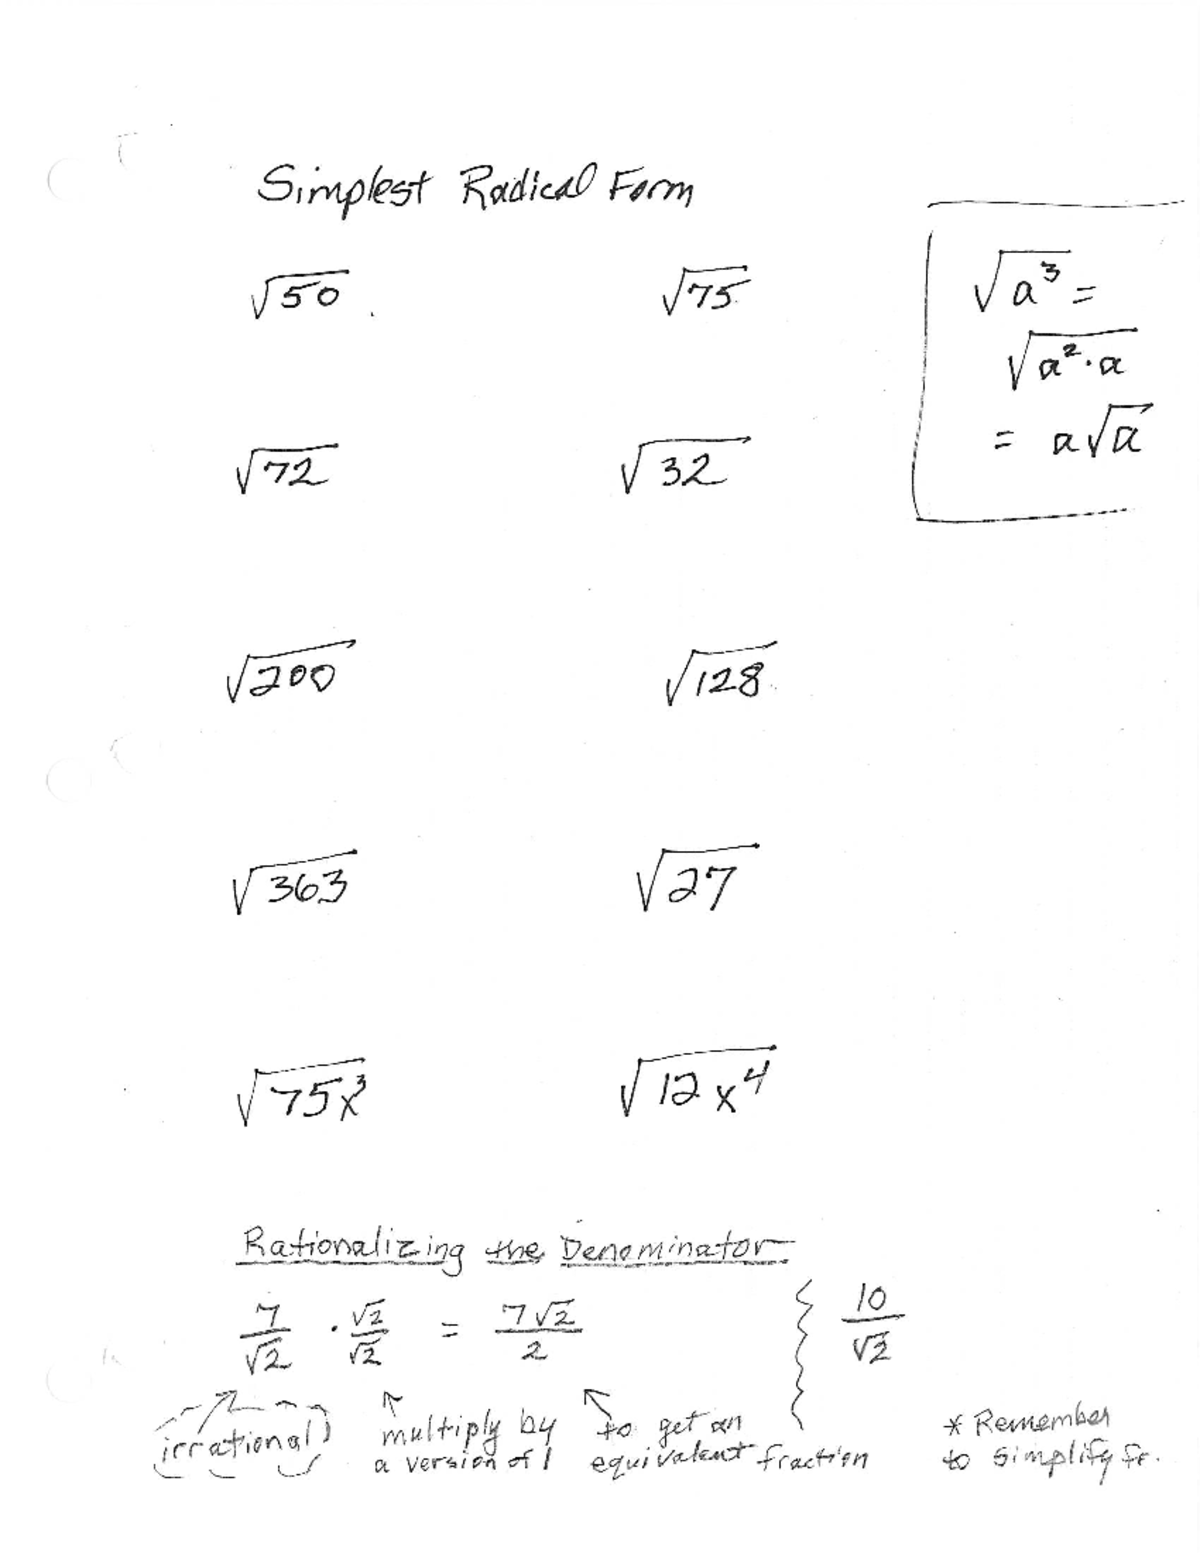 Simplest Radical Form
√50 √75
√a³ =
√a²·a
= a√a
√72 √32
√200 √128
√363 √27
√75x³ √12x⁴
Rationalizing the Denominator
7/√2 · √2/√2 = 7√2/2
10/√2
irrational
multiply by
a version of 1
to get an
equivalent fraction
* Remember
to simplify fr.